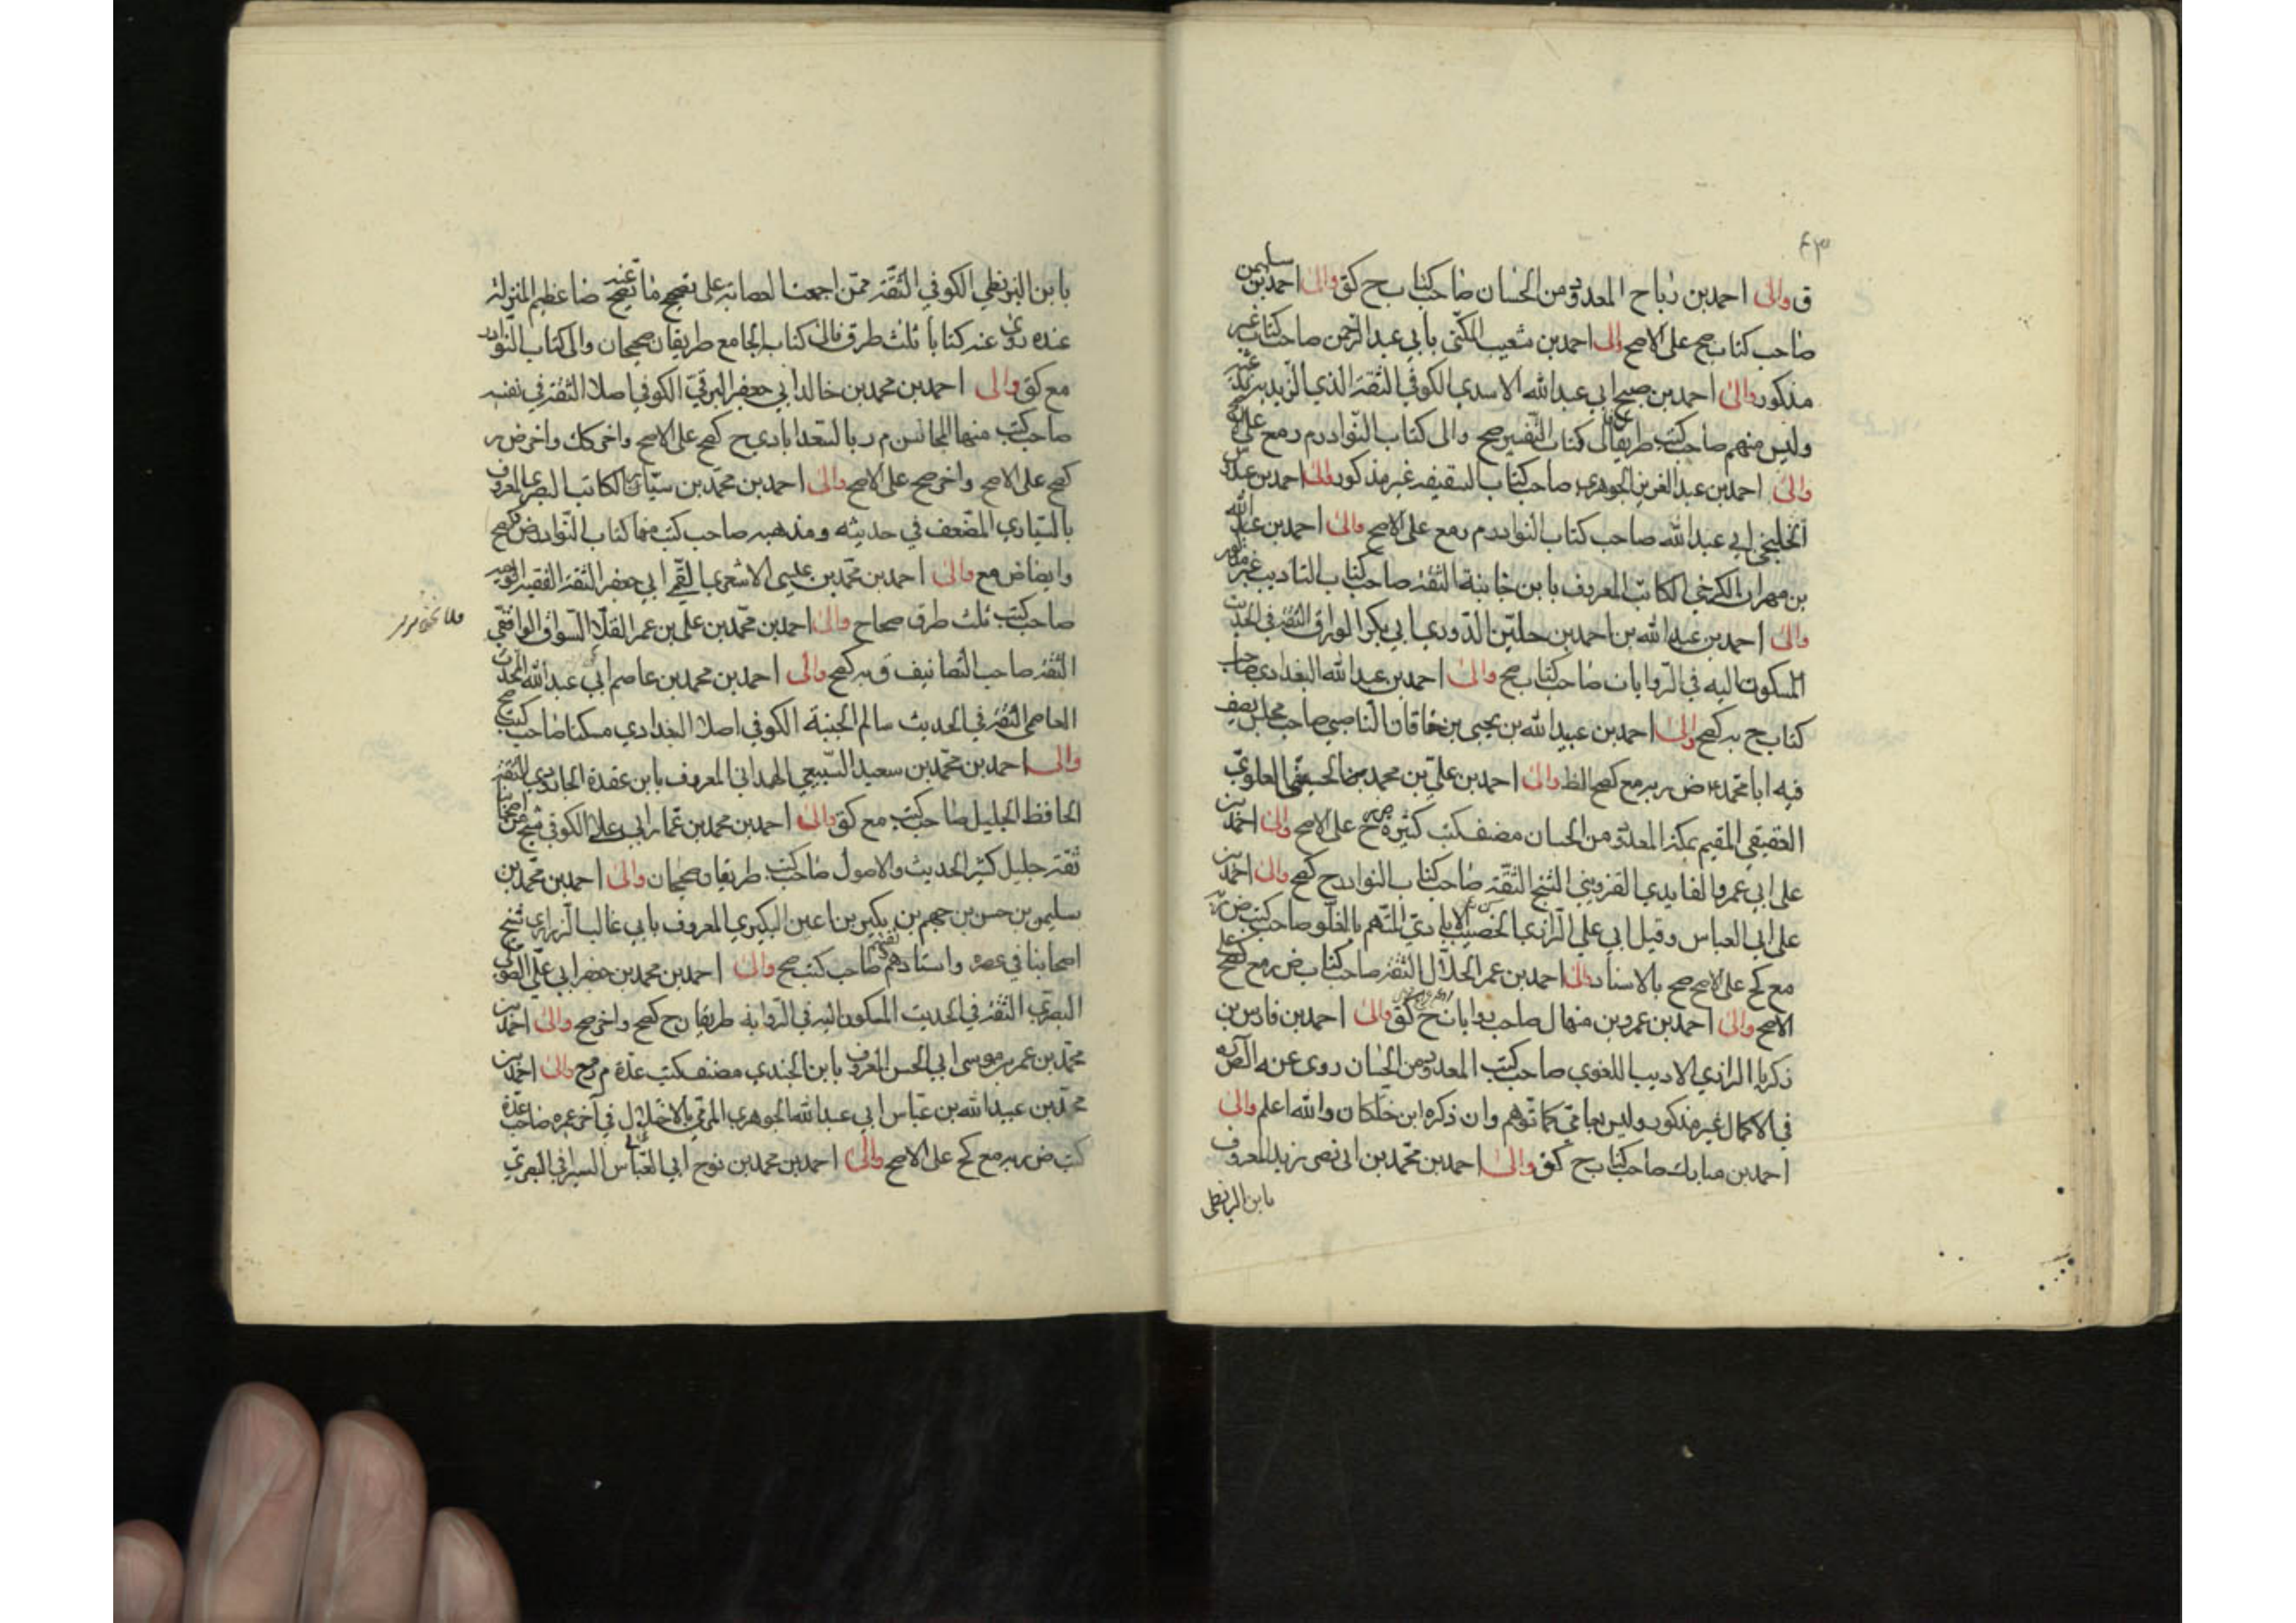 ق والى احمد بن رباح المعدود من الحسان صاحب كتاب ح كق والى احمد بن سليمن
صاحب كتاب صح على الاصح والى احمد بن شعيب المكنى بابي عبد الرحمن صاحب كتاب غير
مذكور والى احمد بن صبيح ابي عبد الله الاسدي الكوفي الثقة الذي الزيدية
وليس منهم صاحب كتب طريقا الى كتاب التفسير صح والى كتاب النوادر م ر مع
والى احمد بن عبد العزيز الجوهري صاحب كتاب السقيفه غير مذكور والى احمد بن عبدوس
الخليجي ابي عبد الله صاحب كتاب النوادر م ر مع على الاصح والى احمد بن عبد الله
بن مهران الكرخي الكاتب المعروف بابن خانبة الثقة صاحب كتاب التاديب غير مذكور
والى احمد بن عبد الله بن احمد بن جلين الدوري ابي بكر الوراق الثقة في الحديث
المسكون اليه في الروايات صاحب كتاب صح والى احمد بن عبد الله البغدادي صاحب
كتاب ح بر كصح والى احمد بن عبيد الله بن يحيى بن خاقان الناصبي صاحب مجلس يصف
فيه ابا محمد ض ر بر مع كصح الظ والى احمد بن علي بن محمد العلوي
العقيقي المقيم بمكة المعدود من الحسان مصنف كتب كثيرة على الاصح والى احمد بن
على ابي عمر والفايدي القزويني الشيخ الثقة صاحب كتاب النوادر ح كصح والى احمد بن
على ابي العباس وقيل ابي علي الرازي الخضيب الايادي المتهم بالغلو صاحب كتب ض
مع كح على الاصح صح بالاسناد والى احمد بن عمر الحلال الثقة صاحب كتاب ض ر مع كصح على
الاصح والى احمد بن عمرو بن منهال صاحب روايات ح كق والى احمد بن فارس بن
زكريا الرازي الاديب اللغوي صاحب كتب المعدود من الحسان روى عنه الصدوق
في الاكمال غير مذكور وليس بعامي كما توهم وان ذكره ابن خلكان والله اعلم والى
احمد بن مبارك صاحب كتاب ح كق والى احمد بن محمد بن ابي نصر زيد المعروف
بابن البزنطي
بابن البزنطي الكوفي الثقة ممن اجمعت العصابة على تصحيح ما تصح عنه ضا عظيم المنزلة
عنده روى عنه كتابا ثلث طرق فالى كتاب الجامع طريقان صحيحان والى كتاب النوادر
مع كق والى احمد بن محمد بن خالد ابي جعفر البرقي الكوفي اصلا الثقة في نفسه
صاحب كتب منها المحاسن م ر بالسعدابادي ح كصح على الاصح واخى كك واخى ض ر
كصح على الاصح واخى صح على الاصح والى احمد بن محمد بن سيار الكاتب البصري المعروف
بالسياري المضعف في حديثه ومذهبه صاحب كتب منها كتاب النوادر ض كصح
وايضا ض مع والى احمد بن محمد بن عيسى الاشعري القمي ابي جعفر الثقة الفقيه
صاحب كتب ثلث طرق صحاح والى احمد بن محمد بن علي بن عمر القلا السواق الواقفي
الثقة صاحب التصانيف ق بر كصح والى احمد بن محمد بن عاصم ابي عبد الله المحدث
العاصمي الثقة في الحديث سالم الجنبة الكوفي اصلا البغدادي مسكنا صاحب كتب صح
والى احمد بن محمد بن سعيد السبيعي الهمداني المعروف بابن عقدة الجارودي الثقة
الحافظ الجليل صاحب كتب مع كق والى احمد بن محمد بن عمار ابي على الكوفي شيخ من اصحابنا
ثقة جليل كثير الحديث والاصول صاحب كتب طريقان صحيحان والى احمد بن محمد بن
سليمن بن حسن بن جهم بن بكير بن اعين البكيري المعروف بابي غالب الزراري شيخ
اصحابنا في عصره واستادهم ثقتهم صاحب كتب صح والى احمد بن محمد بن جعفر ابي علي الصولي
البصري الثقة في الحديث المسكون اليه في الرواية طريقان ح كصح واخى صح والى احمد بن
محمد بن عمر بن موسى ابي الحسن المعروف بابن الجندي مصنف كتب عدة م ر مع والى احمد بن
محمد بن عبيد الله بن عباس ابي عبد الله الجوهري المرمي بالاختلال في آخر عمره صاحب عدة
كتب ض ر بر مع كح على الاصح والى احمد بن محمد بن نوح ابي العباس السيرافي البصري